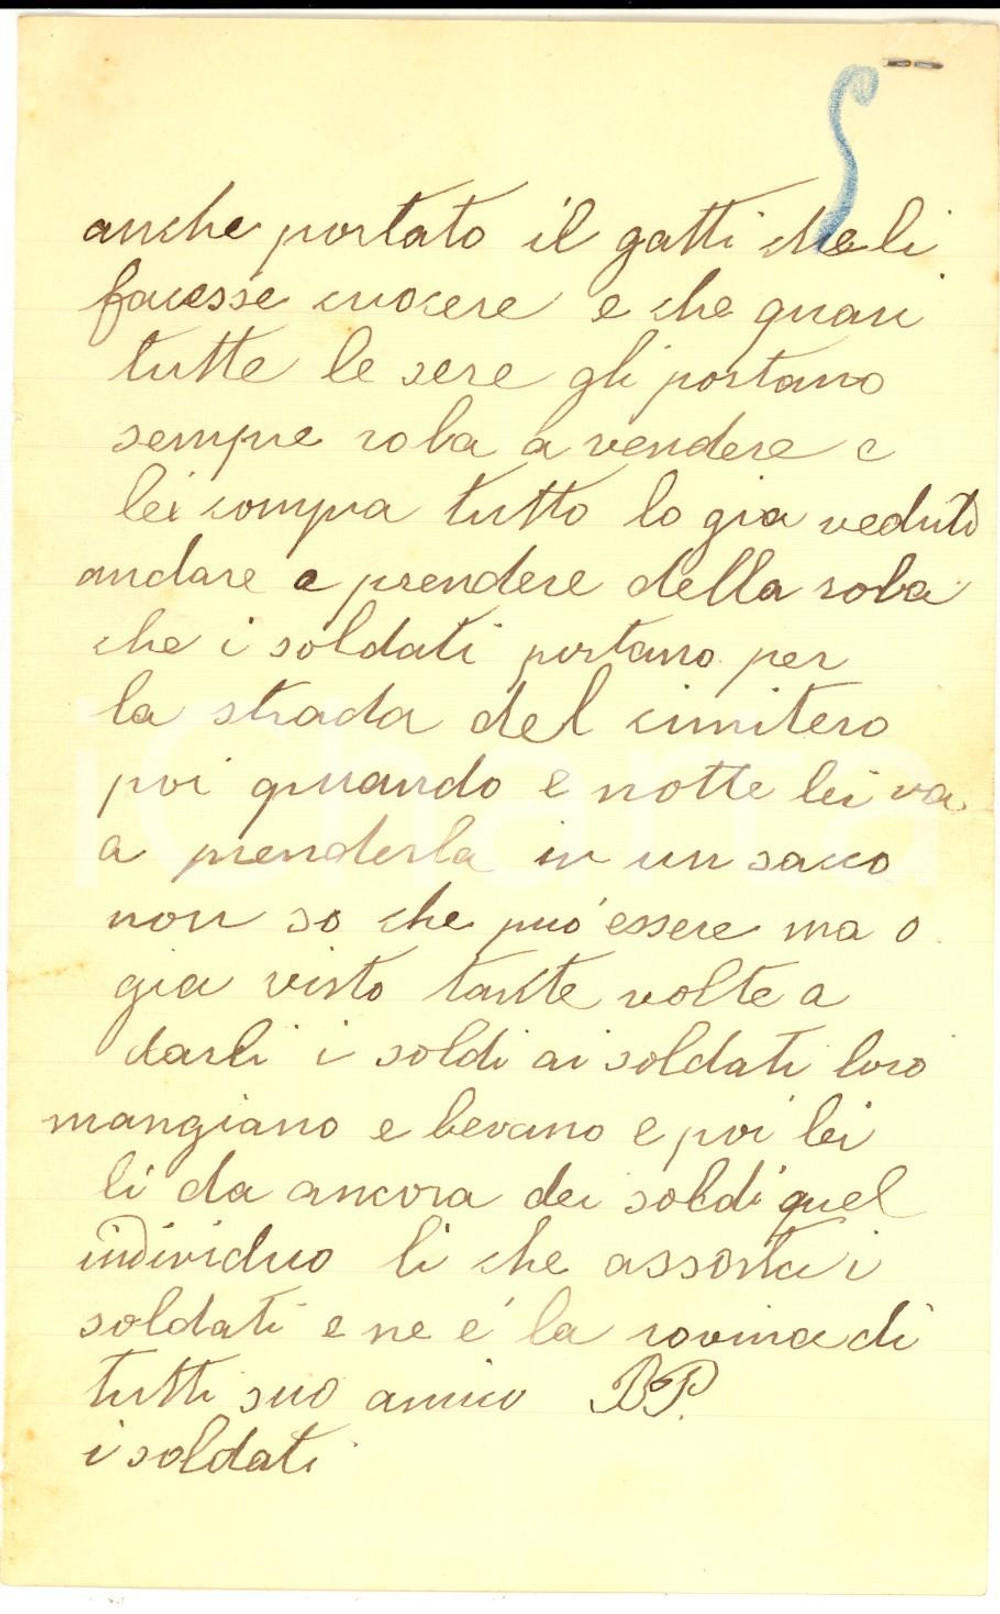 anche portato il gatti che li
facesse cuocere e che quasi
tutte le sere gli portano
sempre roba a vendere e
lei compra tutto lo gia veduto
andare a prendere della roba
che i soldati portano per
la strada del cimitero
poi quando e notte lei va
a prenderla in un sacco
non so che può essere ma o
gia visto tante volte a
darli i soldi ai soldati loro
mangiano e bevano e poi lei
li da ancora dei soldi quel
individuo li che assorta i
soldati e ne é la rovina di
tutti suo amico B.P.
i soldati